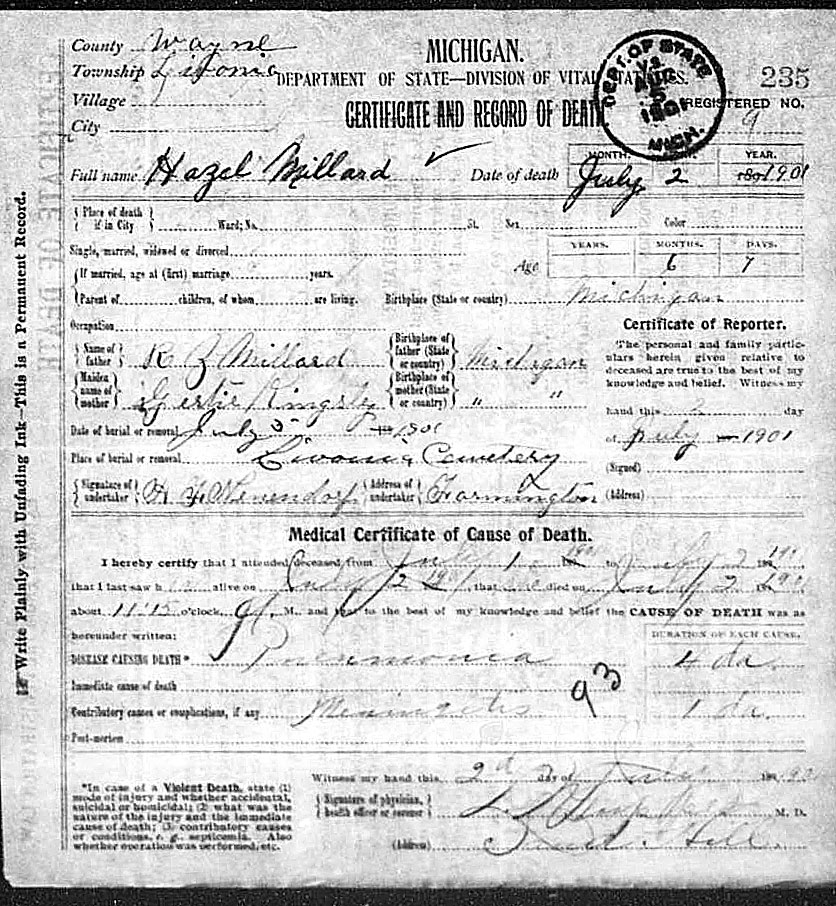 County Wayne
MICHIGAN.
Township Livonia
DEPARTMENT OF STATE—DIVISION OF VITAL STATISTICS.
DEPT. OF STATE
AUG
5
1901
MICH.
235
Village
CERTIFICATE AND RECORD OF DEATH
REGISTERED NO.
9
City
Full name Hazel Millard
Date of death
MONTH. DAY. YEAR.
July 2 189 1901
{ Place of death if in City } Ward; No. St. Sex Color
Single, married, widowed or divorced
Age
YEARS. MONTHS. DAYS.
6 7
{ If married, age at (first) marriage years.
{ Parent of children, of whom are living. Birthplace (State or country) Michigan
Occupation
{ Name of father } R Millard { Birthplace of father (State or country) } Michigan
{ Maiden name of mother } Gertie Kingsly { Birthplace of mother (State or country) } " "
Date of burial or removal July 3 1901
Place of burial or removal Livonia Cemetery
{ Signature of undertaker } { Address of undertaker } Farmington
Certificate of Reporter.
The personal and family partic-
ulars herein given relative to
deceased are true to the best of my
knowledge and belief. Witness my
hand this 2 day
of July 1901
(Signed)
(Address)
Medical Certificate of Cause of Death.
I hereby certify that I attended deceased from July 1 1901 to July 2 1901
that I last saw h alive on July 2 1901 that she died on July 2 190
about 11'15 o'clock, M., and that to the best of my knowledge and belief the CAUSE OF DEATH was as
hereunder written:
DURATION OF EACH CAUSE.
DISEASE CAUSING DEATH* Pneumonia 4 da.
Immediate cause of death
93
Contributory causes or complications, if any Meningitis 1 da.
Post-mortem
Witness my hand this 2d day of July
*In case of a Violent Death, state (1)
mode of injury and whether accidental,
suicidal or homicidal; (2) what was the
nature of the injury and the immediate
cause of death; (3) contributory causes
or conditions, e. g., septicemia. Also
whether operation was performed, etc.
{ Signature of physician, health officer or coroner } M. D.
(Address)
Write Plainly with Unfading Ink—This is a Permanent Record.